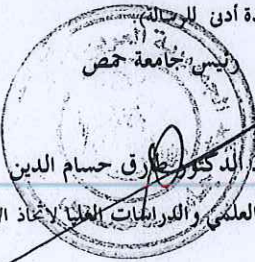 دة أدنى للرسالة
رئيس جامعة حمص
الدكتور طارق حسام الدين
العلمي والدراسات العليا لاتخاذ ال